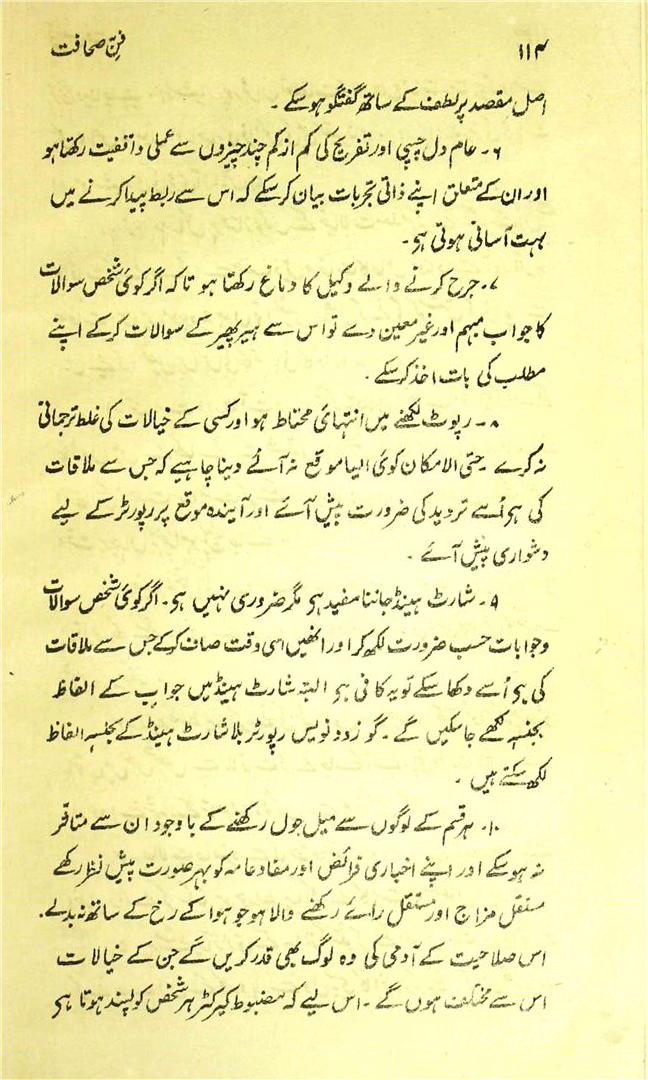 ۱۱۴
فنِّ صحافت
اصل مقصد پر لطف کے ساتھ گفتگو ہوسکے ۔
۶۔ عام دل چسپی اور تفریح کی کم از کم چند چیزوں سے عملی واقفیت رکھتا ہو
اور ان کے متعلق اپنے ذاتی تجربات بیان کرسکے کہ اس سے ربط پیدا کرنے میں
بہت آسانی ہوتی ہی۔
۷۔ جرح کرنے والے وکیل کا دماغ رکھتا ہو تاکہ اگر کوئ شخص سوالات
کا جواب مبہم اور غیر معین دے تو اس سے ہیر پھیر کے سوالات کرکے اپنے
مطلب کی بات اخذ کرسکے ۔
۸۔ رپوٹ لکھنے میں انتہائ محتاط ہو اور کسی کے خیالات کی غلط ترجمانی
نہ کرے حتی الامکان کوئ ایسا موقع نہ آنے دینا چاہیے کہ جس سے ملاقات
کی ہی اُسے تردید کی ضرورت پیش آئے اور آیندہ موقع پر رپورٹر کے لیے
دشواری پیش آئے ۔
۹۔ شارٹ ہینڈ جاننا مفید ہی مگر ضروری نہیں ہی۔ اگر کوئ شخص سوالات
وجوابات حسب ضرورت لکھ کر اور انھیں اسی وقت صاف کرکے جس سے ملاقات
کی ہی اُسے دکھا سکے تو یہ کافی ہی البتہ شارٹ ہینڈ میں جواب کے الفاظ
بجنسہٖ لکھے جاسکیں گے ۔ گو زود نویس رپورٹر بلا شارٹ ہینڈ کے بجنسہٖ الفاظ
لکھ سکتے ہیں ۔
۱۰۔ ہر قسم کے لوگوں سے میل جول رکھنے کے باوجود ان سے متاثر
نہ ہوسکے اور اپنے اخباری فرائض اور مفاد عامہ کو بہر صورت پیش نظر رکھے
مستقل مزاج اور مستقل رائے رکھنے والا ہو جو ہوا کے رخ کے ساتھ نہ بدلے۔
اس صلاحیت کے آدمی کی وہ لوگ بھی قدر کریں گے جن کے خیالات
اس سے مختلف ہوں گے ۔ اس لیے کہ مضبوط کیرکٹر ہر شخص کو پسند ہوتا ہی